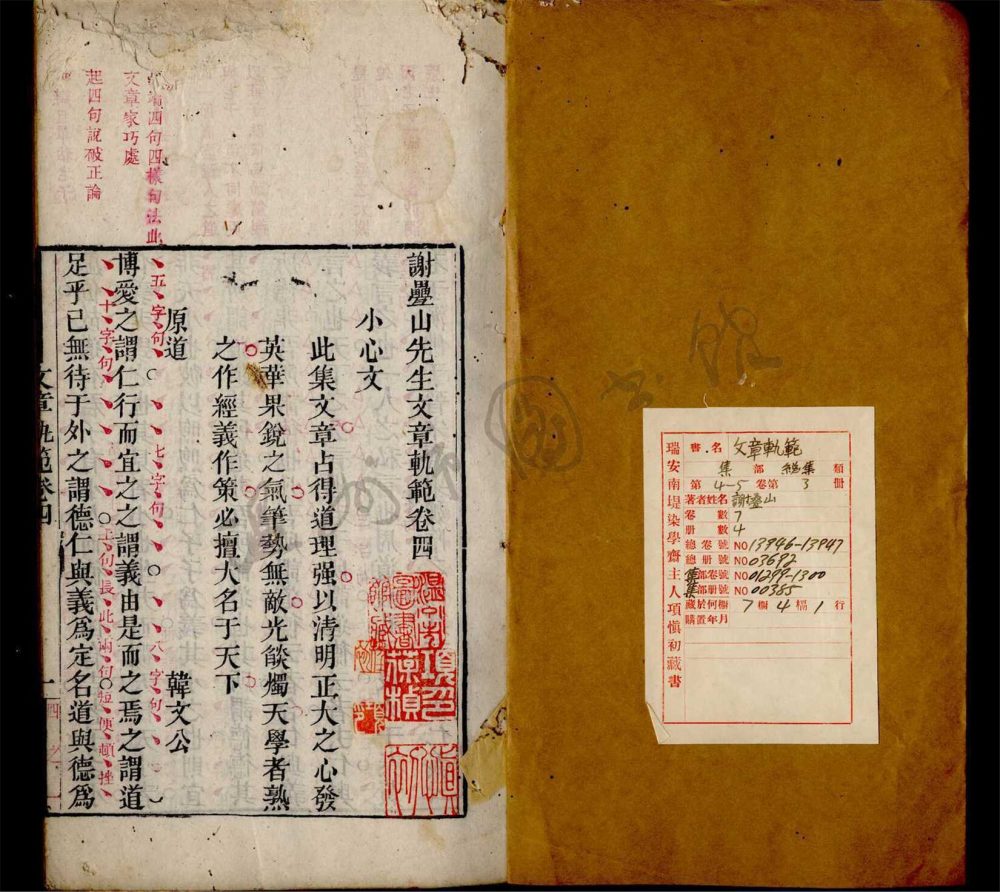 瑞安南堤染學齋主人項慎初藏書
書名 文章軌範
集部 總集類
第4-5卷第3冊
著者姓名 謝壘山
卷數 7
册數 4
總卷號 NO13946-13947
總册號 NO03692
集部卷號 NO01299-1300
集部册號 NO00385
藏於何櫥 7櫥4幅1行
購置年月
謝疊山先生文章軌範卷四
小心文
此集文章占得道理强以清明正大之心發
英華果銳之氣筆勢無敵光燄燭天學者熟
之作經義作策必擅大名于天下
原道 韓文公
五字句 七字句 八字句
博愛之謂仁行而宜之之謂義由是而之焉之謂道
十字句 上句長此兩句短便頓挫
足乎己無待于外之謂德仁與義爲定名道與德爲
文章軌範卷四
四句四樣句法此
文章家巧處
起四句說破正論